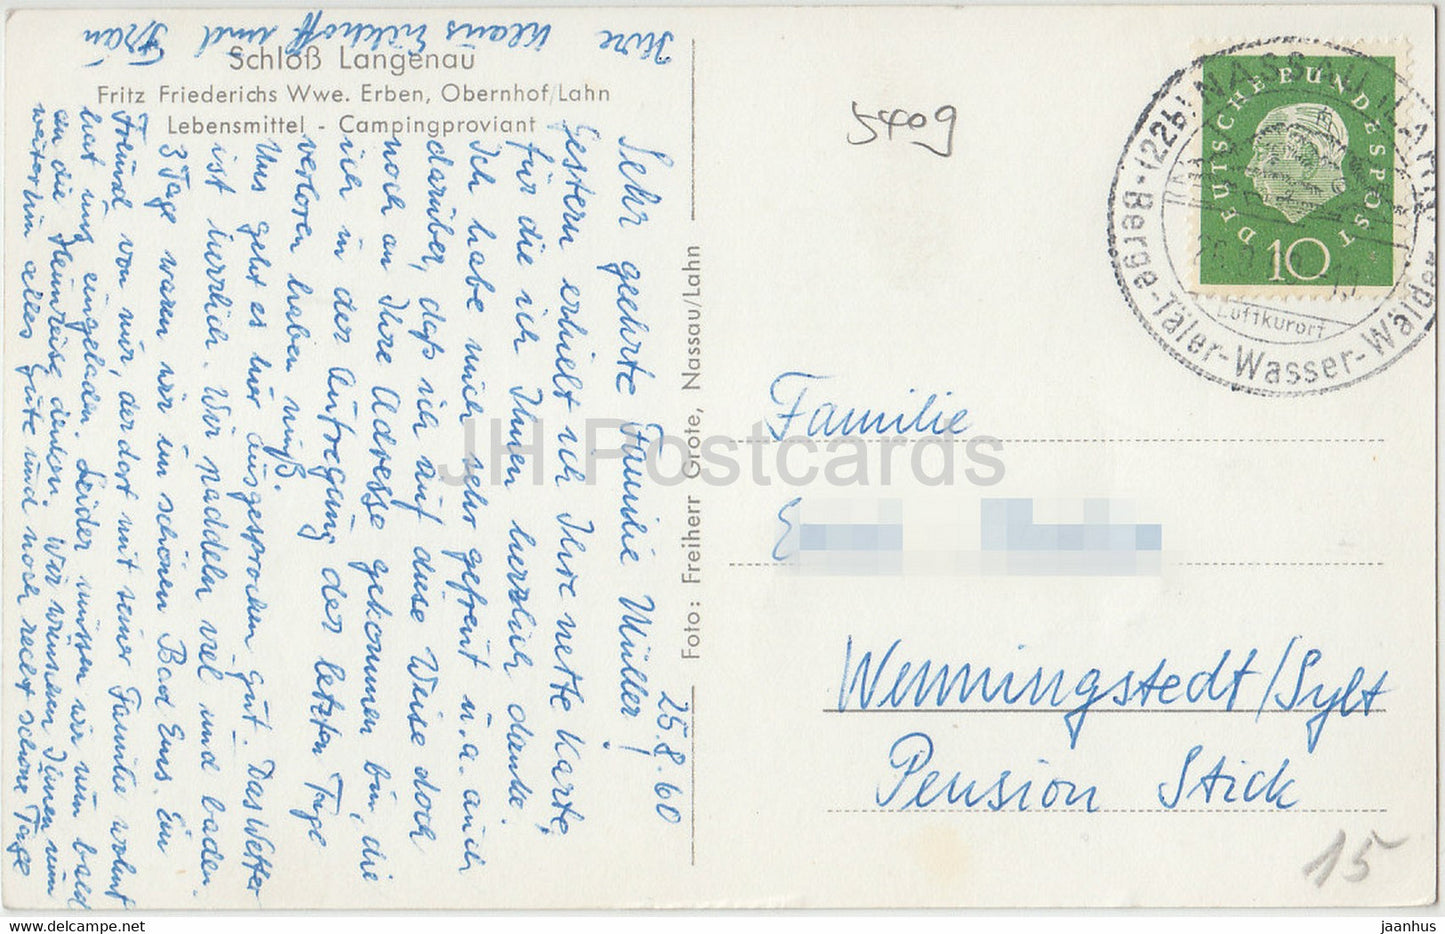 Schloß Langenau
Fritz Friederichs Wwe. Erben, Obernhof/Lahn
Lebensmittel - Campingproviant
25.8.60
Sehr geehrte Familie Müller!
Gestern erhielt ich Ihre nette Karte,
für die ich Ihnen herzlich danke.
Ich habe mich sehr gefreut u.a. auch
darüber, daß ich auf diese Weise doch
noch an Ihre Adresse gekommen bin, die
ich in der Aufregung der letzten Tage
verloren haben muß.
Uns geht es hier ausgesprochen gut. Das Wetter
ist herrlich. Wir paddeln viel und baden.
3 Tage waren wir im schönen Bad Ems. Ein
Freund von mir, der dort mit seiner Familie wohnt
hat uns eingeladen. Leider müssen wir nun bald
an die Heimreise denken. Wir wünschen Ihnen nun
weiterhin alles gute und noch recht schöne Tage
Ihre Klaus und Frau
Foto: Freiherr Grote, Nassau/Lahn
5409
DEUTSCHE BUNDESPOST
10
(22b) NASSAU (LAHN)
Luftkurort
Berge-Täler-Wasser-Wälder
Familie
Wenningstedt/Sylt
Pension Stick
15
JH Postcards
jaanhus